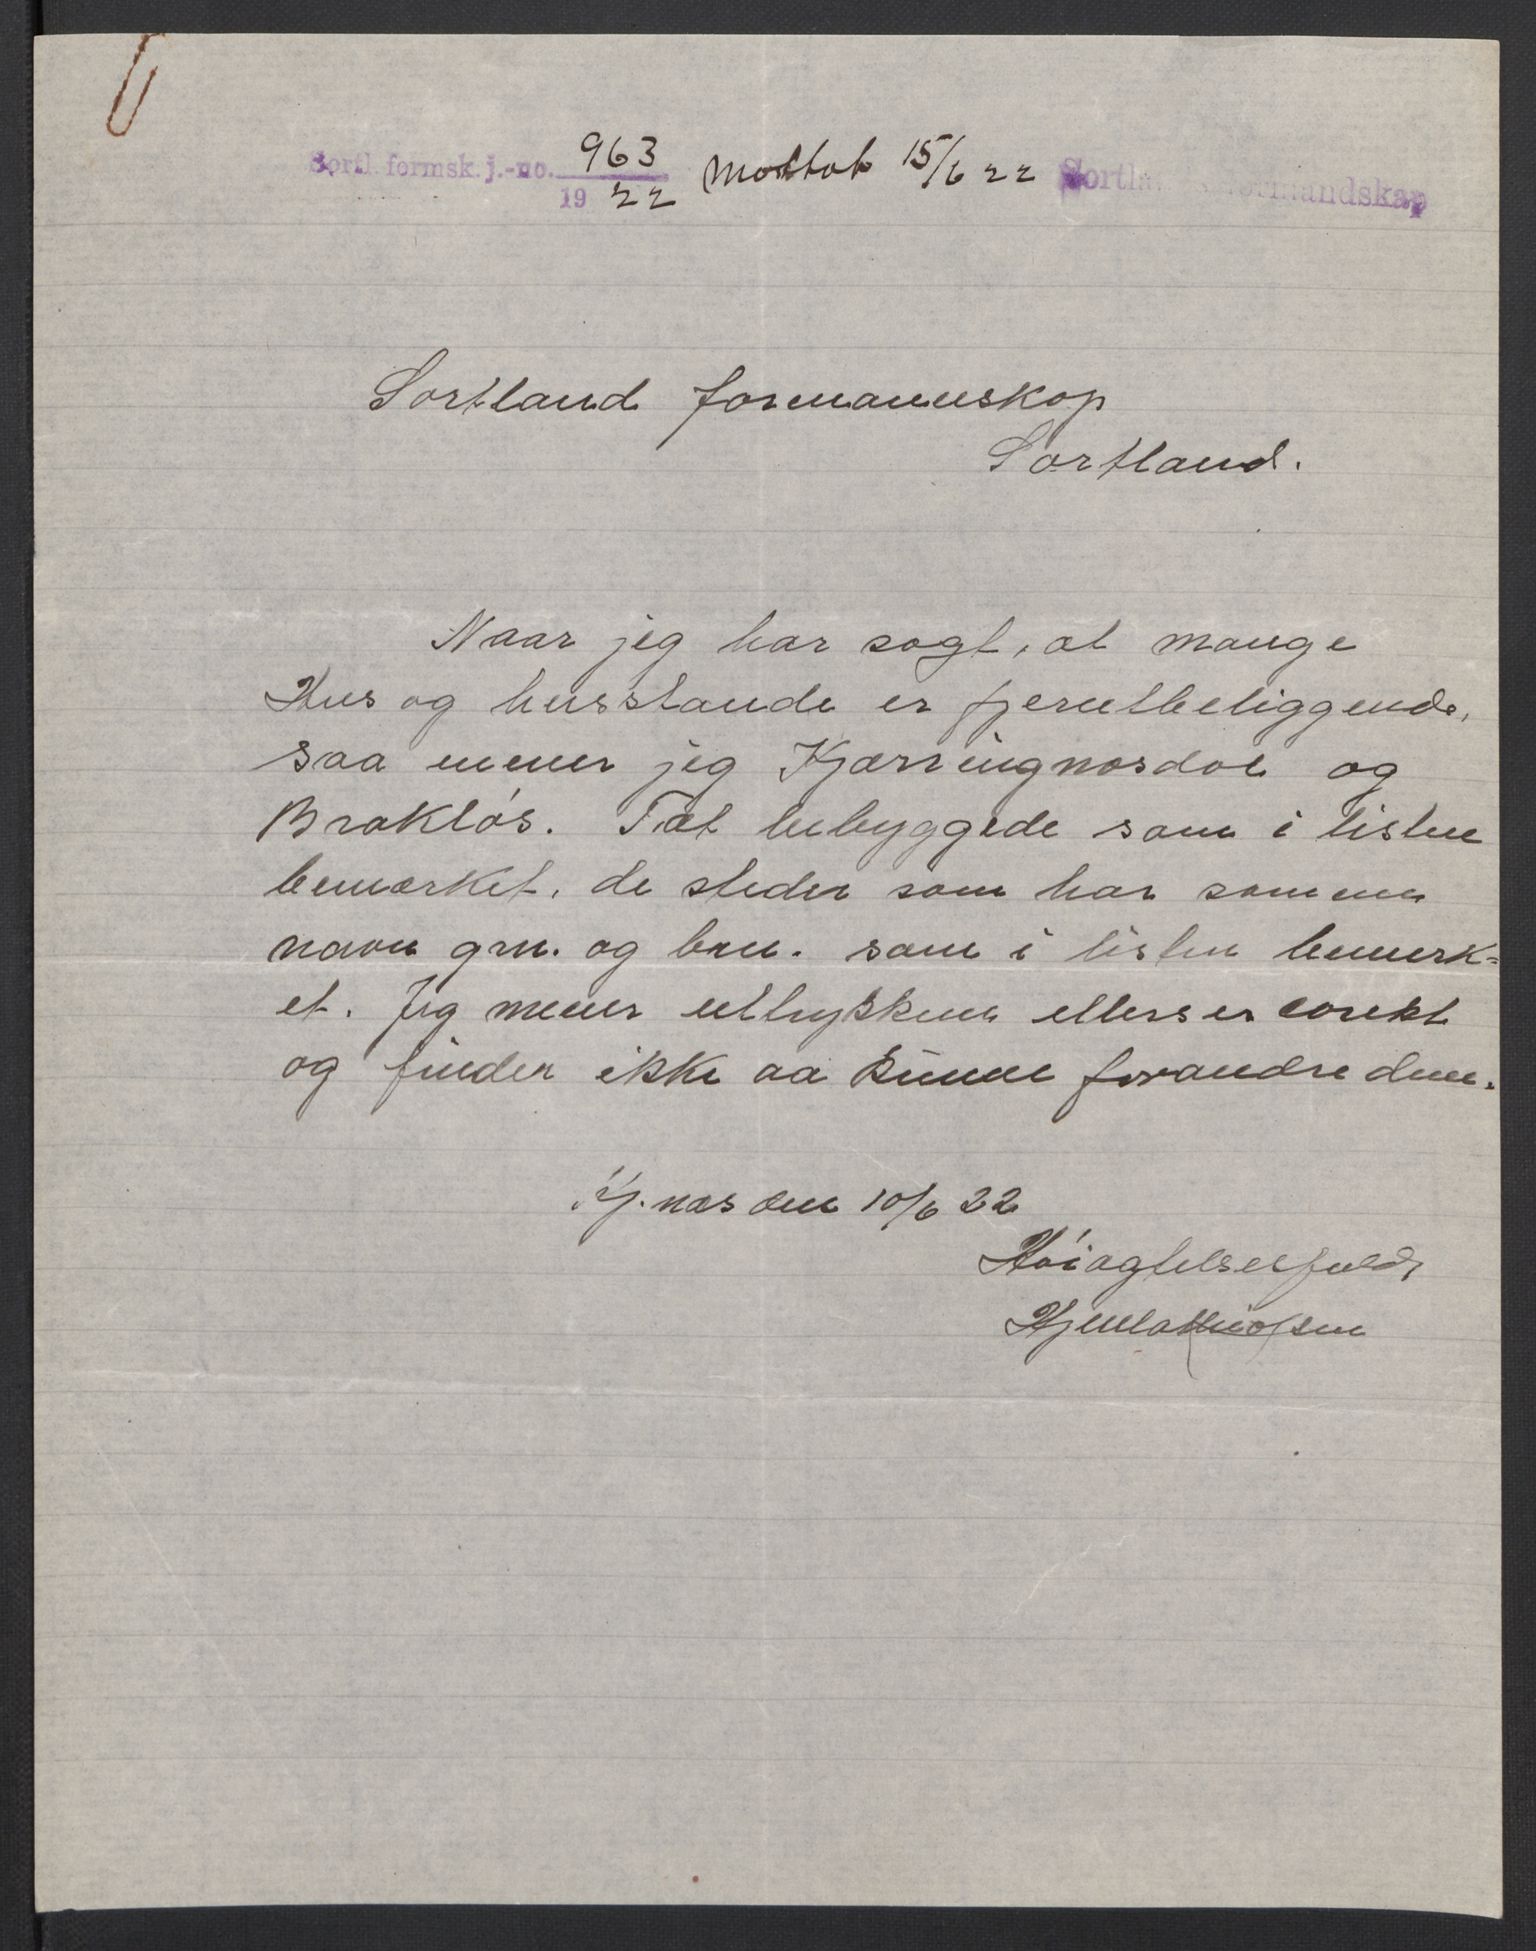 Sortl. formsk. j.-no. 963 Mottok 15/6 22 Sortland formandskap
19 22
Sortland formannskap
Sortland.
Naar jeg har sagt, at mange
Hus og husstande er fjerntbeliggende,
saa mener jeg Kjærringnæsdal og
Brokløs. Tæt bebyggede som i listen
bemærket, de steder som har samme
navn grn. og brn. som i listen bemerk=
et. Jeg mener uttrykkene ellers er corekt
og finder ikke aa kunne forandre dem.
Kj.næs den 10/6 22
Høiagtelsesfuld,